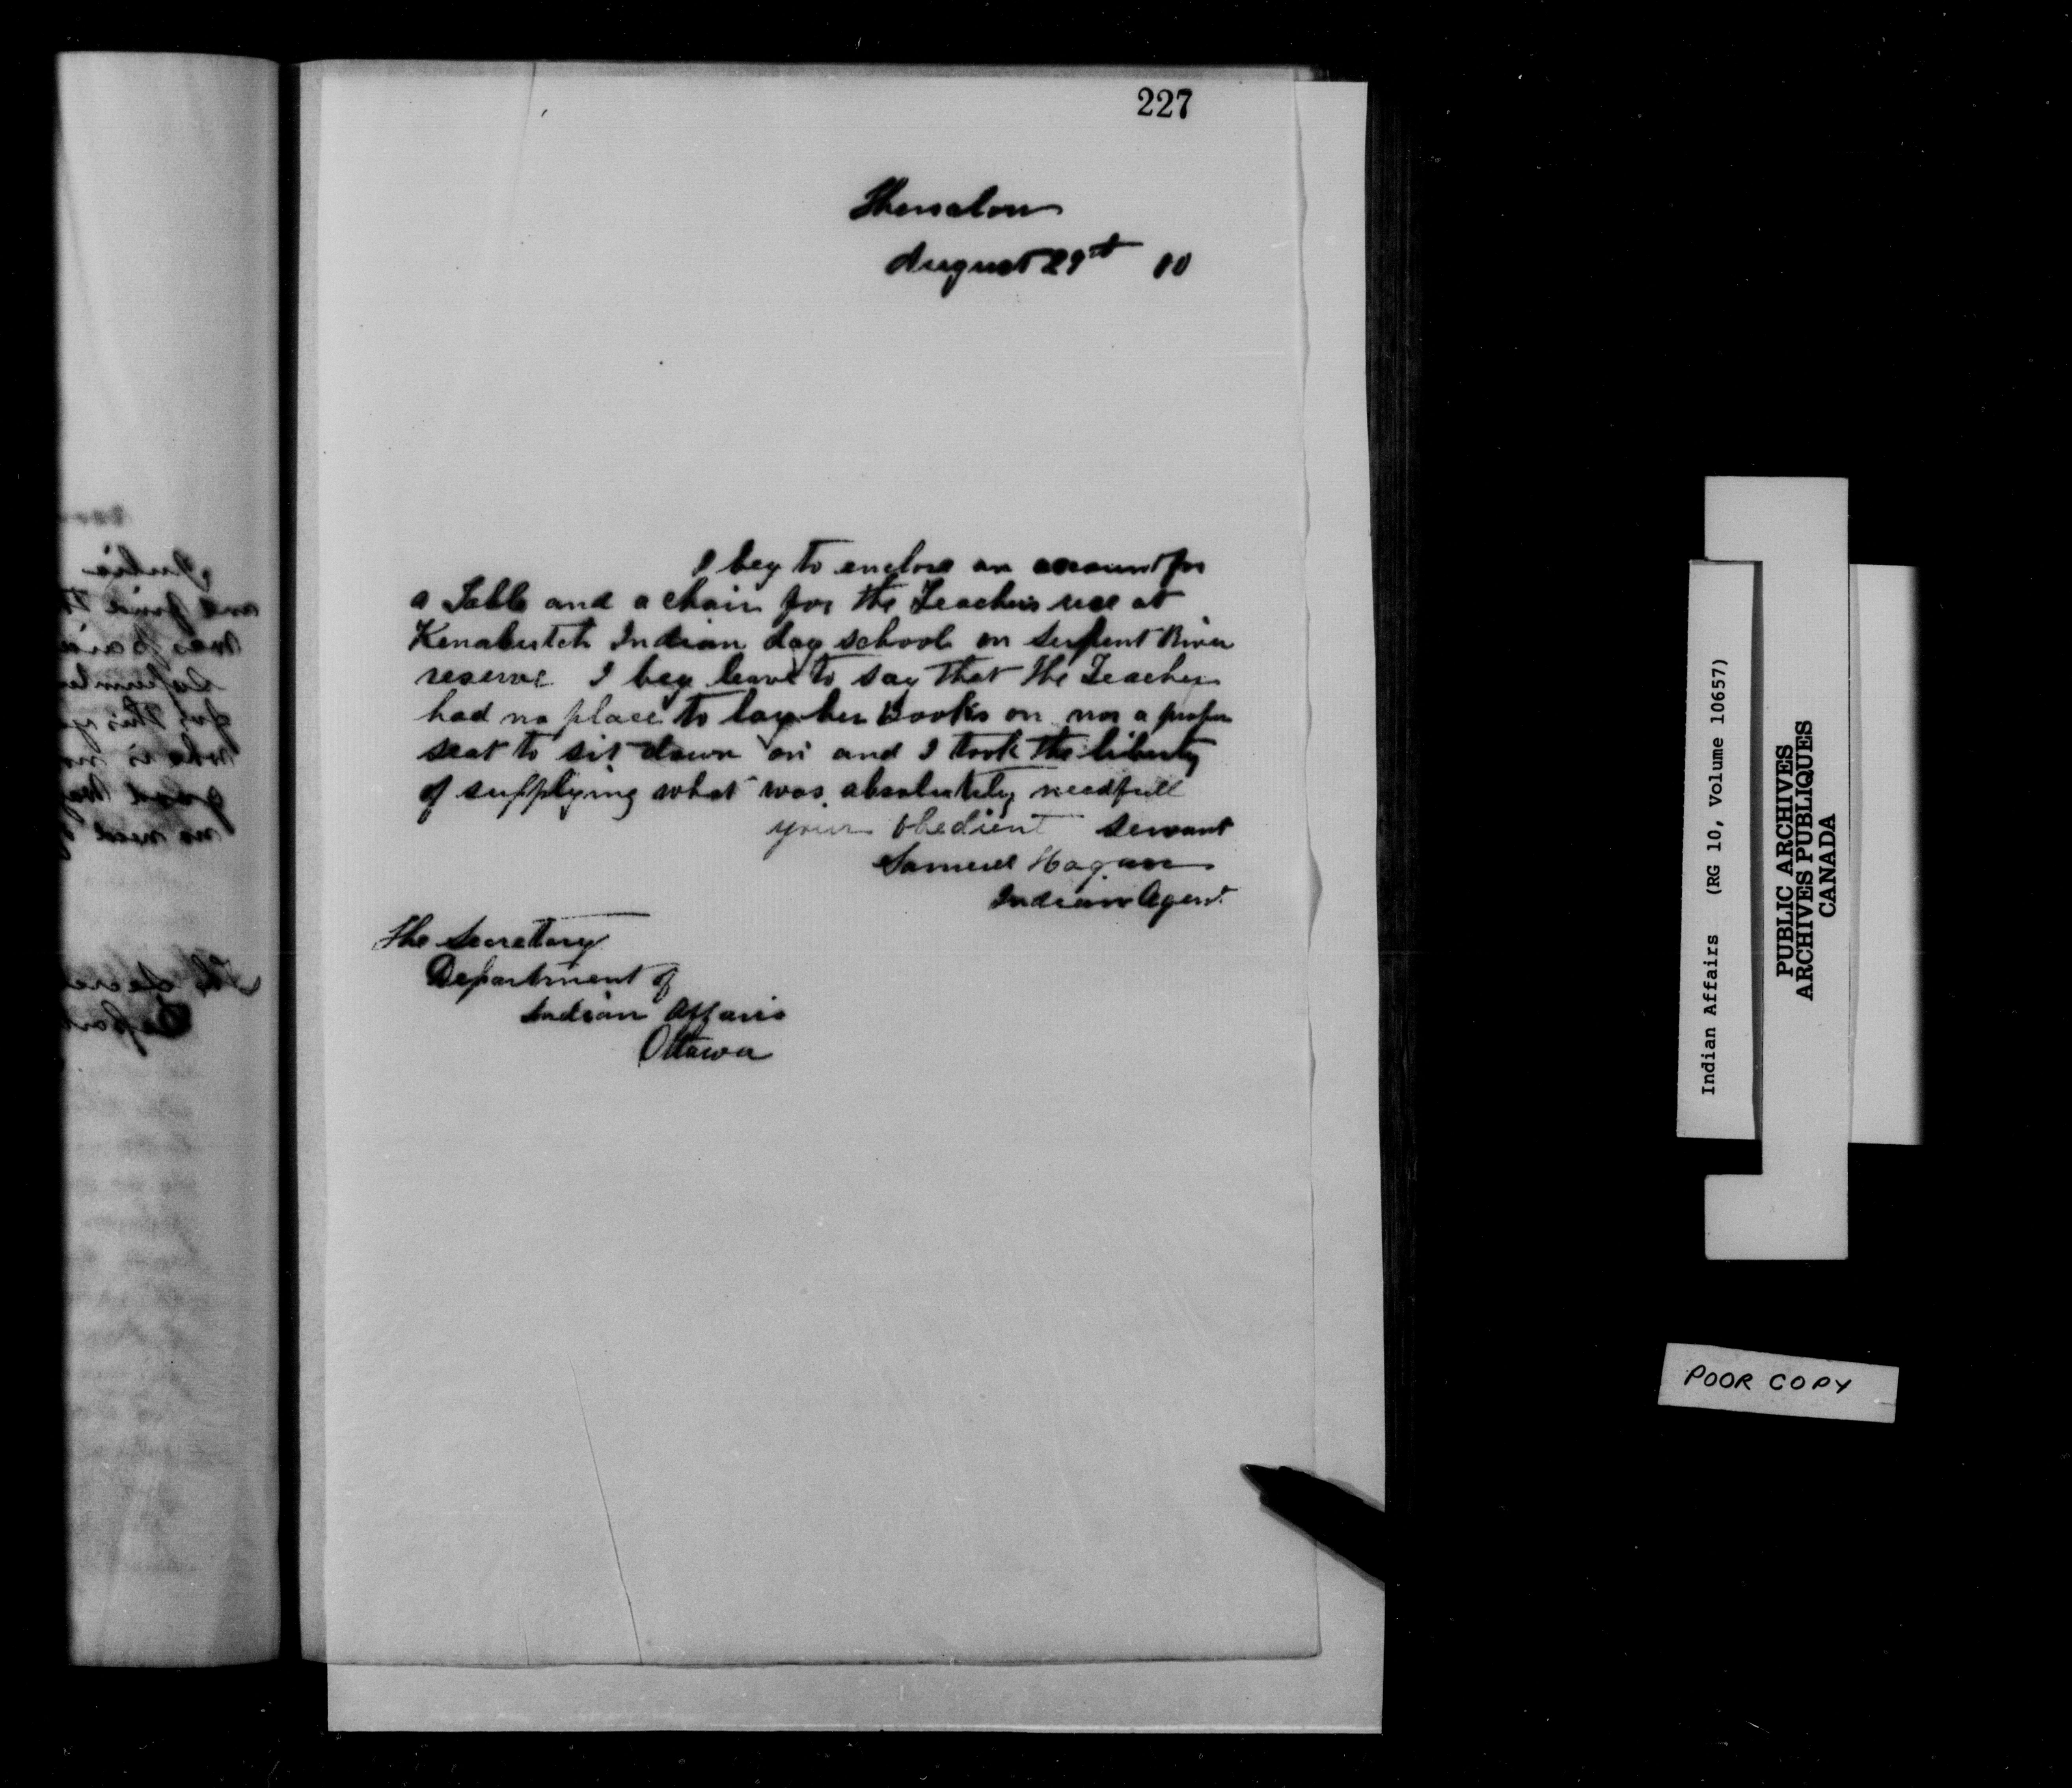 227
Thessalon
August 29th 00
I beg to enclose an account for
a Table and a chair for the Teachers use at
Kenabutch Indian day school on Serpent River
reserve I beg leave to say that the Teacher
had no place to lay her Books on nor a proper
seat to sit down on and I took the liberty
of supplying what was absolutely needfull
your obedient servant
Samuel Hagan
Indian Agent
The Secretary
Department of
Indian Affairs
Ottawa
Indian Affairs (RG 10, Volume 10657)
PUBLIC ARCHIVES
ARCHIVES PUBLIQUES
CANADA
POOR COPY